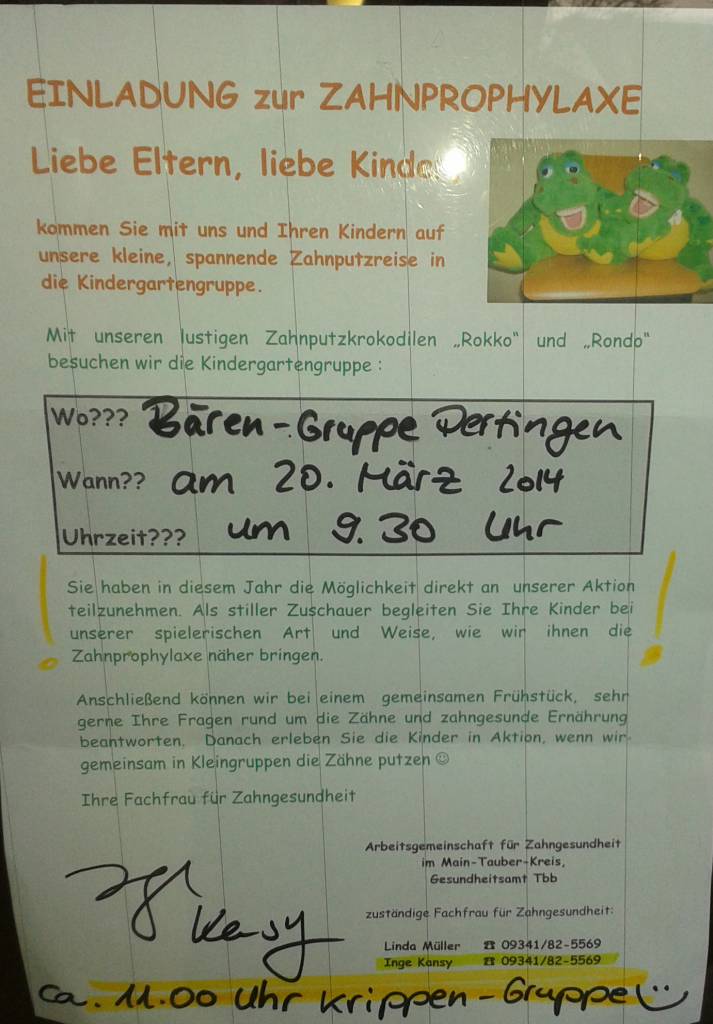 EINLADUNG zur ZAHNPROPHYLAXE
Liebe Eltern, liebe Kinde
kommen Sie mit uns und Ihren Kindern auf
unsere kleine, spannende Zahnputzreise in
die Kindergartengruppe.
Mit unseren lustigen Zahnputzkrokodilen „Rokko“ und „Rondo“
besuchen wir die Kindergartengruppe :
Wo??? Bären-Gruppe Dertingen
Wann?? am 20. März 2014
Uhrzeit??? um 9.30 Uhr
Sie haben in diesem Jahr die Möglichkeit direkt an unserer Aktion
teilzunehmen. Als stiller Zuschauer begleiten Sie Ihre Kinder bei
unserer spielerischen Art und Weise, wie wir ihnen die
Zahnprophylaxe näher bringen.
Anschließend können wir bei einem gemeinsamen Frühstück, sehr
gerne Ihre Fragen rund um die Zähne und zahngesunde Ernährung
beantworten. Danach erleben Sie die Kinder in Aktion, wenn wir
gemeinsam in Kleingruppen die Zähne putzen ☺
Ihre Fachfrau für Zahngesundheit
Arbeitsgemeinschaft für Zahngesundheit
im Main-Tauber-Kreis,
Gesundheitsamt Tbb
zuständige Fachfrau für Zahngesundheit:
Linda Müller ☎ 09341/82-5569
Inge Kansy ☎ 09341/82-5569
Kansy
ca. 11.00 Uhr Krippen-Gruppe